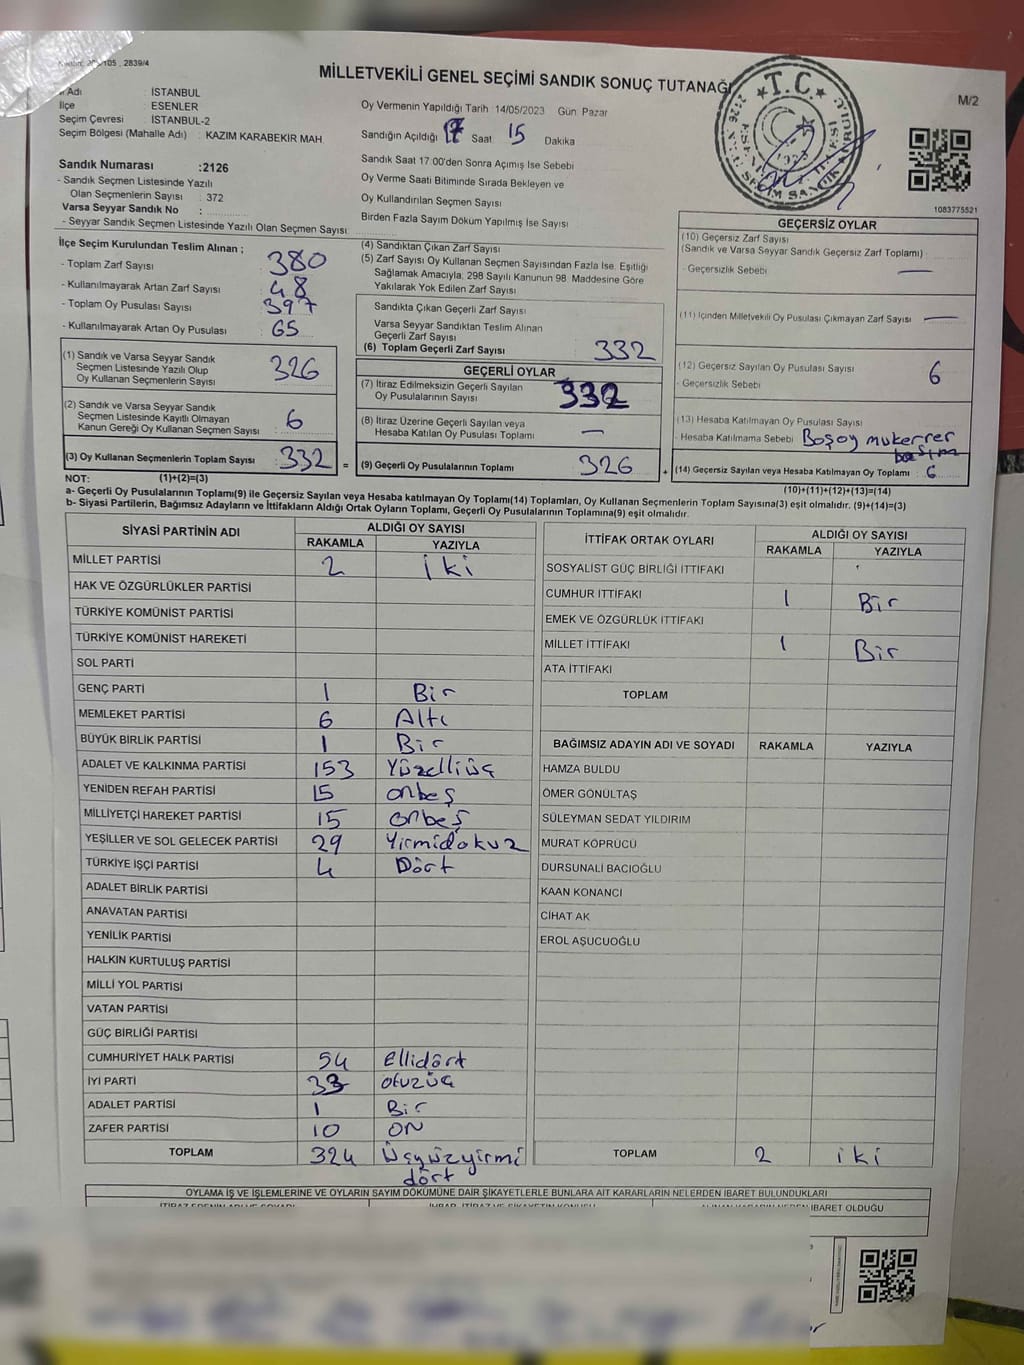 MİLLETVEKİLİ GENEL SEÇİMİ SANDIK SONUÇ TUTANAĞI
M/2
İl Adı : İSTANBUL
İlçe : ESENLER
Seçim Çevresi : İSTANBUL-2
Seçim Bölgesi (Mahalle Adı) : KAZIM KARABEKİR MAH
Sandık Numarası :2126
- Sandık Seçmen Listesinde Yazılı
Olan Seçmenlerin Sayısı : 372
Varsa Seyyar Sandık No :
- Seyyar Sandık Seçmen Listesinde Yazılı Olan Seçmen Sayısı:
Oy Vermenin Yapıldığı Tarih :14/05/2023 Gün: Pazar
Sandığın Açıldığı 17 Saat 15 Dakika
Sandık Saat 17:00'den Sonra Açımış İse Sebebi
Oy Verme Saati Bitiminde Sırada Bekleyen ve
Oy Kullandırılan Seçmen Sayısı
Birden Fazla Sayım Döküm Yapılmış İse Sayısı
T.C.
1083775521
İlçe Seçim Kurulundan Teslim Alınan ;
- Toplam Zarf Sayısı : 380
- Kullanılmayarak Artan Zarf Sayısı : 48
- Toplam Oy Pusulası Sayısı : 397
- Kullanılmayarak Artan Oy Pusulası : 65
(1) Sandık ve Varsa Seyyar Sandık
Seçmen Listesinde Yazılı Olup
Oy Kullanan Seçmenlerin Sayısı 326
(2) Sandık ve Varsa Seyyar Sandık
Seçmen Listesinde Kayıtlı Olmayan
Kanun Gereği Oy Kullanan Seçmen Sayısı : 6
(3) Oy Kullanan Seçmenlerin Toplam Sayısı : 332 =
(4) Sandıktan Çıkan Zarf Sayısı
(5) Zarf Sayısı Oy Kullanan Seçmen Sayısından Fazla İse, Eşitliği
Sağlamak Amacıyla, 298 Sayılı Kanunun 98. Maddesine Göre
Yakılarak Yok Edilen Zarf Sayısı
Sandıkta Çıkan Geçerli Zarf Sayısı
Varsa Seyyar Sandıktan Teslim Alınan
Geçerli Zarf Sayısı
(6) Toplam Geçerli Zarf Sayısı 332
GEÇERLİ OYLAR
(7) İtiraz Edilmeksizin Geçerli Sayılan
Oy Pusulalarının Sayısı 332
(8) İtiraz Üzerine Geçerli Sayılan veya
Hesaba Katılan Oy Pusulası Toplamı —
(9) Geçerli Oy Pusulalarının Toplamı 326 +
GEÇERSİZ OYLAR
(10) Geçersiz Zarf Sayısı
(Sandık ve Varsa Seyyar Sandık Geçersiz Zarf Toplamı) :
- Geçersizlik Sebebi —
(11) İçinden Milletvekili Oy Pusulası Çıkmayan Zarf Sayısı : —
(12) Geçersiz Sayılan Oy Pusulası Sayısı : 6
- Geçersizlik Sebebi
(13) Hesaba Katılmayan Oy Pusulası Sayısı
- Hesaba Katılmama Sebebi Boşoy mukerrer
basım
(14) Geçersiz Sayılan veya Hesaba Katılmayan Oy Toplamı : 6
NOT: (1)+(2)=(3) (10)+(11)+(12)+(13)=(14)
a- Geçerli Oy Pusulalarının Toplamı(9) ile Geçersiz Sayılan veya Hesaba katılmayan Oy Toplamı(14) Toplamları, Oy Kullanan Seçmenlerin Toplam Sayısına(3) eşit olmalıdır. (9)+(14)=(3)
b- Siyasi Partilerin, Bağımsız Adayların ve İttifakların Aldığı Ortak Oyların Toplamı, Geçerli Oy Pusulalarının Toplamına(9) eşit olmalıdır.
SİYASİ PARTİNİN ADI ALDIĞI OY SAYISI
RAKAMLA YAZIYLA
MİLLET PARTİSİ 2 iki
HAK VE ÖZGÜRLÜKLER PARTİSİ
TÜRKİYE KOMÜNİST PARTİSİ
TÜRKİYE KOMÜNİST HAREKETİ
SOL PARTİ
GENÇ PARTİ 1 Bir
MEMLEKET PARTİSİ 6 Altı
BÜYÜK BİRLİK PARTİSİ 1 Bir
ADALET VE KALKINMA PARTİSİ 153 Yüzelliüç
YENİDEN REFAH PARTİSİ 15 onbeş
MİLLİYETÇİ HAREKET PARTİSİ 15 onbeş
YEŞİLLER VE SOL GELECEK PARTİSİ 29 Yirmidokuz
TÜRKİYE İŞÇİ PARTİSİ 4 Dört
ADALET BİRLİK PARTİSİ
ANAVATAN PARTİSİ
YENİLİK PARTİSİ
HALKIN KURTULUŞ PARTİSİ
MİLLİ YOL PARTİSİ
VATAN PARTİSİ
GÜÇ BİRLİĞİ PARTİSİ
CUMHURİYET HALK PARTİSİ 54 ellidört
İYİ PARTİ 33 otuzüç
ADALET PARTİSİ 1 Bir
ZAFER PARTİSİ 10 ON
TOPLAM 324 Üçyüzyirmi
dört
İTTİFAK ORTAK OYLARI ALDIĞI OY SAYISI
RAKAMLA YAZIYLA
SOSYALİST GÜÇ BİRLİĞİ İTTİFAKI
CUMHUR İTTİFAKI 1 Bir
EMEK VE ÖZGÜRLÜK İTTİFAKI
MİLLET İTTİFAKI 1 Bir
ATA İTTİFAKI
TOPLAM
BAĞIMSIZ ADAYIN ADI VE SOYADI RAKAMLA YAZIYLA
HAMZA BULDU
ÖMER GÖNÜLTAŞ
SÜLEYMAN SEDAT YILDIRIM
MURAT KÖPRÜCÜ
DURSUNALİ BACIOĞLU
KAAN KONANCI
CİHAT AK
EROL AŞUCUOĞLU
TOPLAM 2 iki
OYLAMA İŞ VE İŞLEMLERİNE VE OYLARIN SAYIM DÖKÜMÜNE DAİR ŞİKAYETLERLE BUNLARA AİT KARARLARIN NELERDEN İBARET BULUNDUKLARI
İBARET OLDUĞU